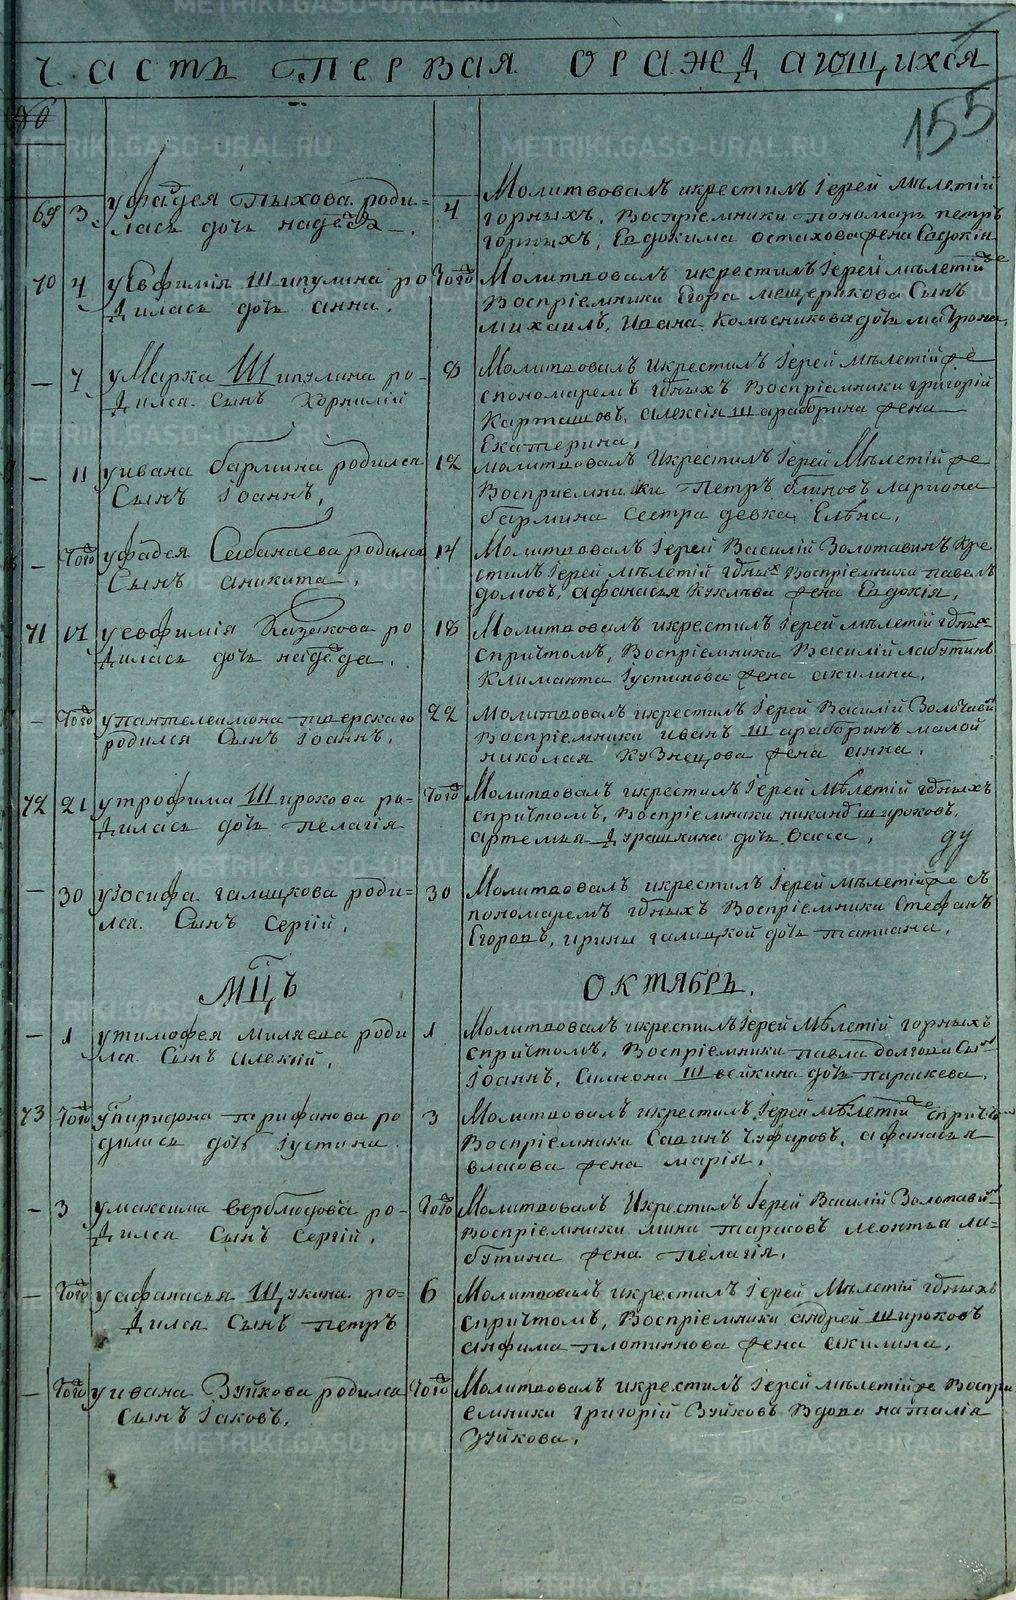 Часть первая о раждающихся
155
69 3 у Фадея Пыхова роди-
лась дочь надежда
4
Молитвовалъ икрестилъ Іерей Мѣлетій
горныхъ, Воспріемники пономарь петръ
горныхъ, Евдокима остахова жена Евдокія
70 4 у Евфимія Шипулина ро
дилась дочь анна.
того
Молитвовалъ икрестилъ Іерей мѣлетій
Воспріемники Егора мещерякова Сынъ
михаилъ, Ивана Колѣсникова дочь матрона,
— 7 у Марка Шипулина ро-
дился Сынъ Корнилій
8
Молитвовалъ икрестилъ Іерей мѣлетій
спономаремъ гдныхъ Воспріемники григорій
Карташовъ, алексія шараборина жена
Екатерина,
— 11 у ивана бармина родился
Сынъ Іоаннъ,
12
молитвовалъ Икрестилъ Іерей Мѣлетій
Восприемники Петръ блиновъ лариона
бармина сестра девка Елѣна,
— того у фадея Сабанаева родился
Сынъ аникита,
14
Молитвовалъ Іерей Василій Золотавинъ Кре
стилъ Іерей мѣлетій гдныхъ Воспріемники павелъ
домовъ, афанасья Куклѣва жена Евдокія,
71 17 у евфимія Казакова ро
дилась дочь надежда.
18
Молитвовалъ икрестилъ Іерей мѣлетій
спричтомъ, Воспріемники Василій лабутинъ
Климанта Іустинова жена акилина,
— того у пантелеимона тверскаго
родился Сынъ Іоаннъ,
22
Молитвовалъ икрестилъ Іерей Василій
Воспріемники иванъ шараборинъ малой
николая Кузнецова жена анна,
72 21 у трофима Широкова ро-
дилась дочь пелагія
того
Молитвовалъ икрестилъ Іерей Мѣлетій гдныхъ
спричтомъ, Воспріемники никанд широковъ,
артемья Дурашкина дочь васса,
— 30 у Іосифа галицкова роди-
лся Сынъ Сергій,
30
Молитвовалъ икрестилъ Іерей мѣлетій съ
пономаремъ гдныхъ Воспріемники Стефанъ
Егоровъ, ирины галицкой дочь татиана,
Мцъ Октябрь.
— 1 у тимофея миляева роди
лся Сынъ алексій,
1
Молитвовалъ икрестилъ Іерей Мѣлетій горныхъ
спричтомъ, Воспріемники павла долгова Сынъ
Іоаннъ, Симеона Швейкина дочь параскева,
73 того у спиридона трифанова ро
дилась дочь Іустина.
3
Молитвовалъ икрестилъ Іерей мѣлетій
Воспріемники Савинъ Чуфаровъ, афанасья
власова жена марія,
— 3 у максима верблюдова ро-
дился Сынъ Сергій,
того
Молитвовалъ Икрестилъ Іерей Василій
Воспріемники мина тарасовъ леонтья ла-
бутина жена пелагія,
— того у афанасья Щукина ро-
дился Сынъ петръ
6
Молитвовалъ икрестилъ Іерей Мѣлетій гдныхъ
спричтомъ, Воспріемники андрей широковъ
анфима плотникова жена акилина,
— того у ивана Зуйкова родился
сынъ Іаковъ,
того
Молитвовалъ икрестилъ Іерей мѣлетій же Воспри
емники григорій Зуйковъ Вдова наталія
Зуйкова,